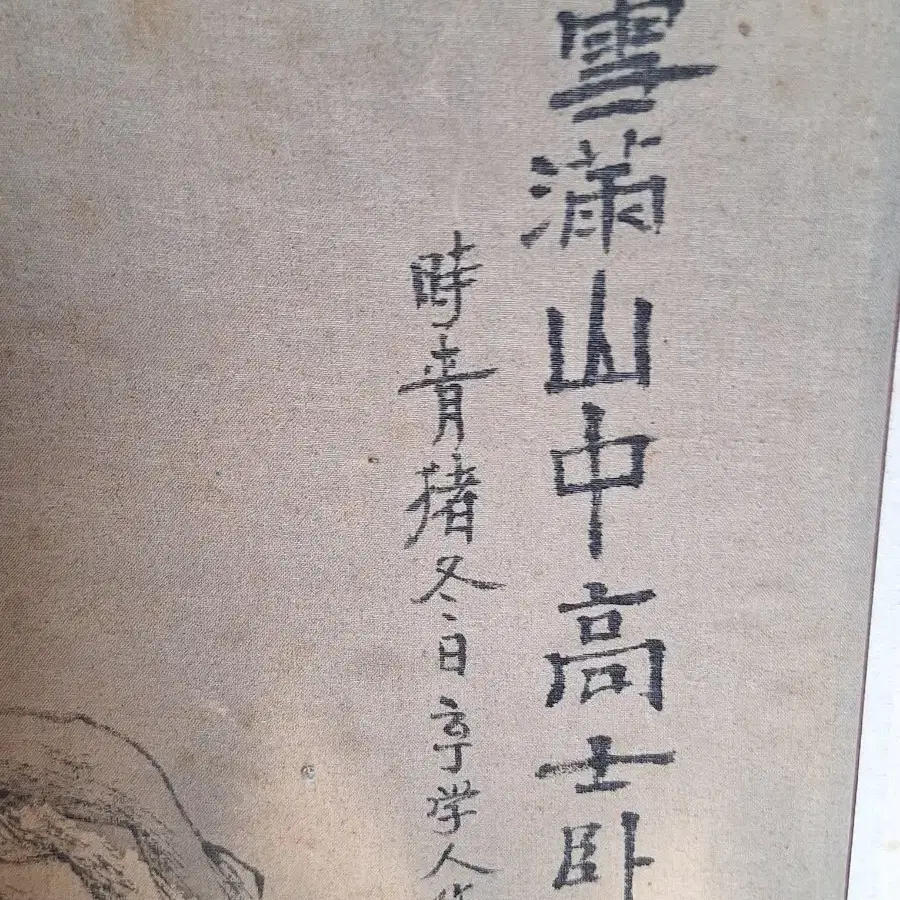 雪滿山中高士卧
時青猪冬日亭学人作